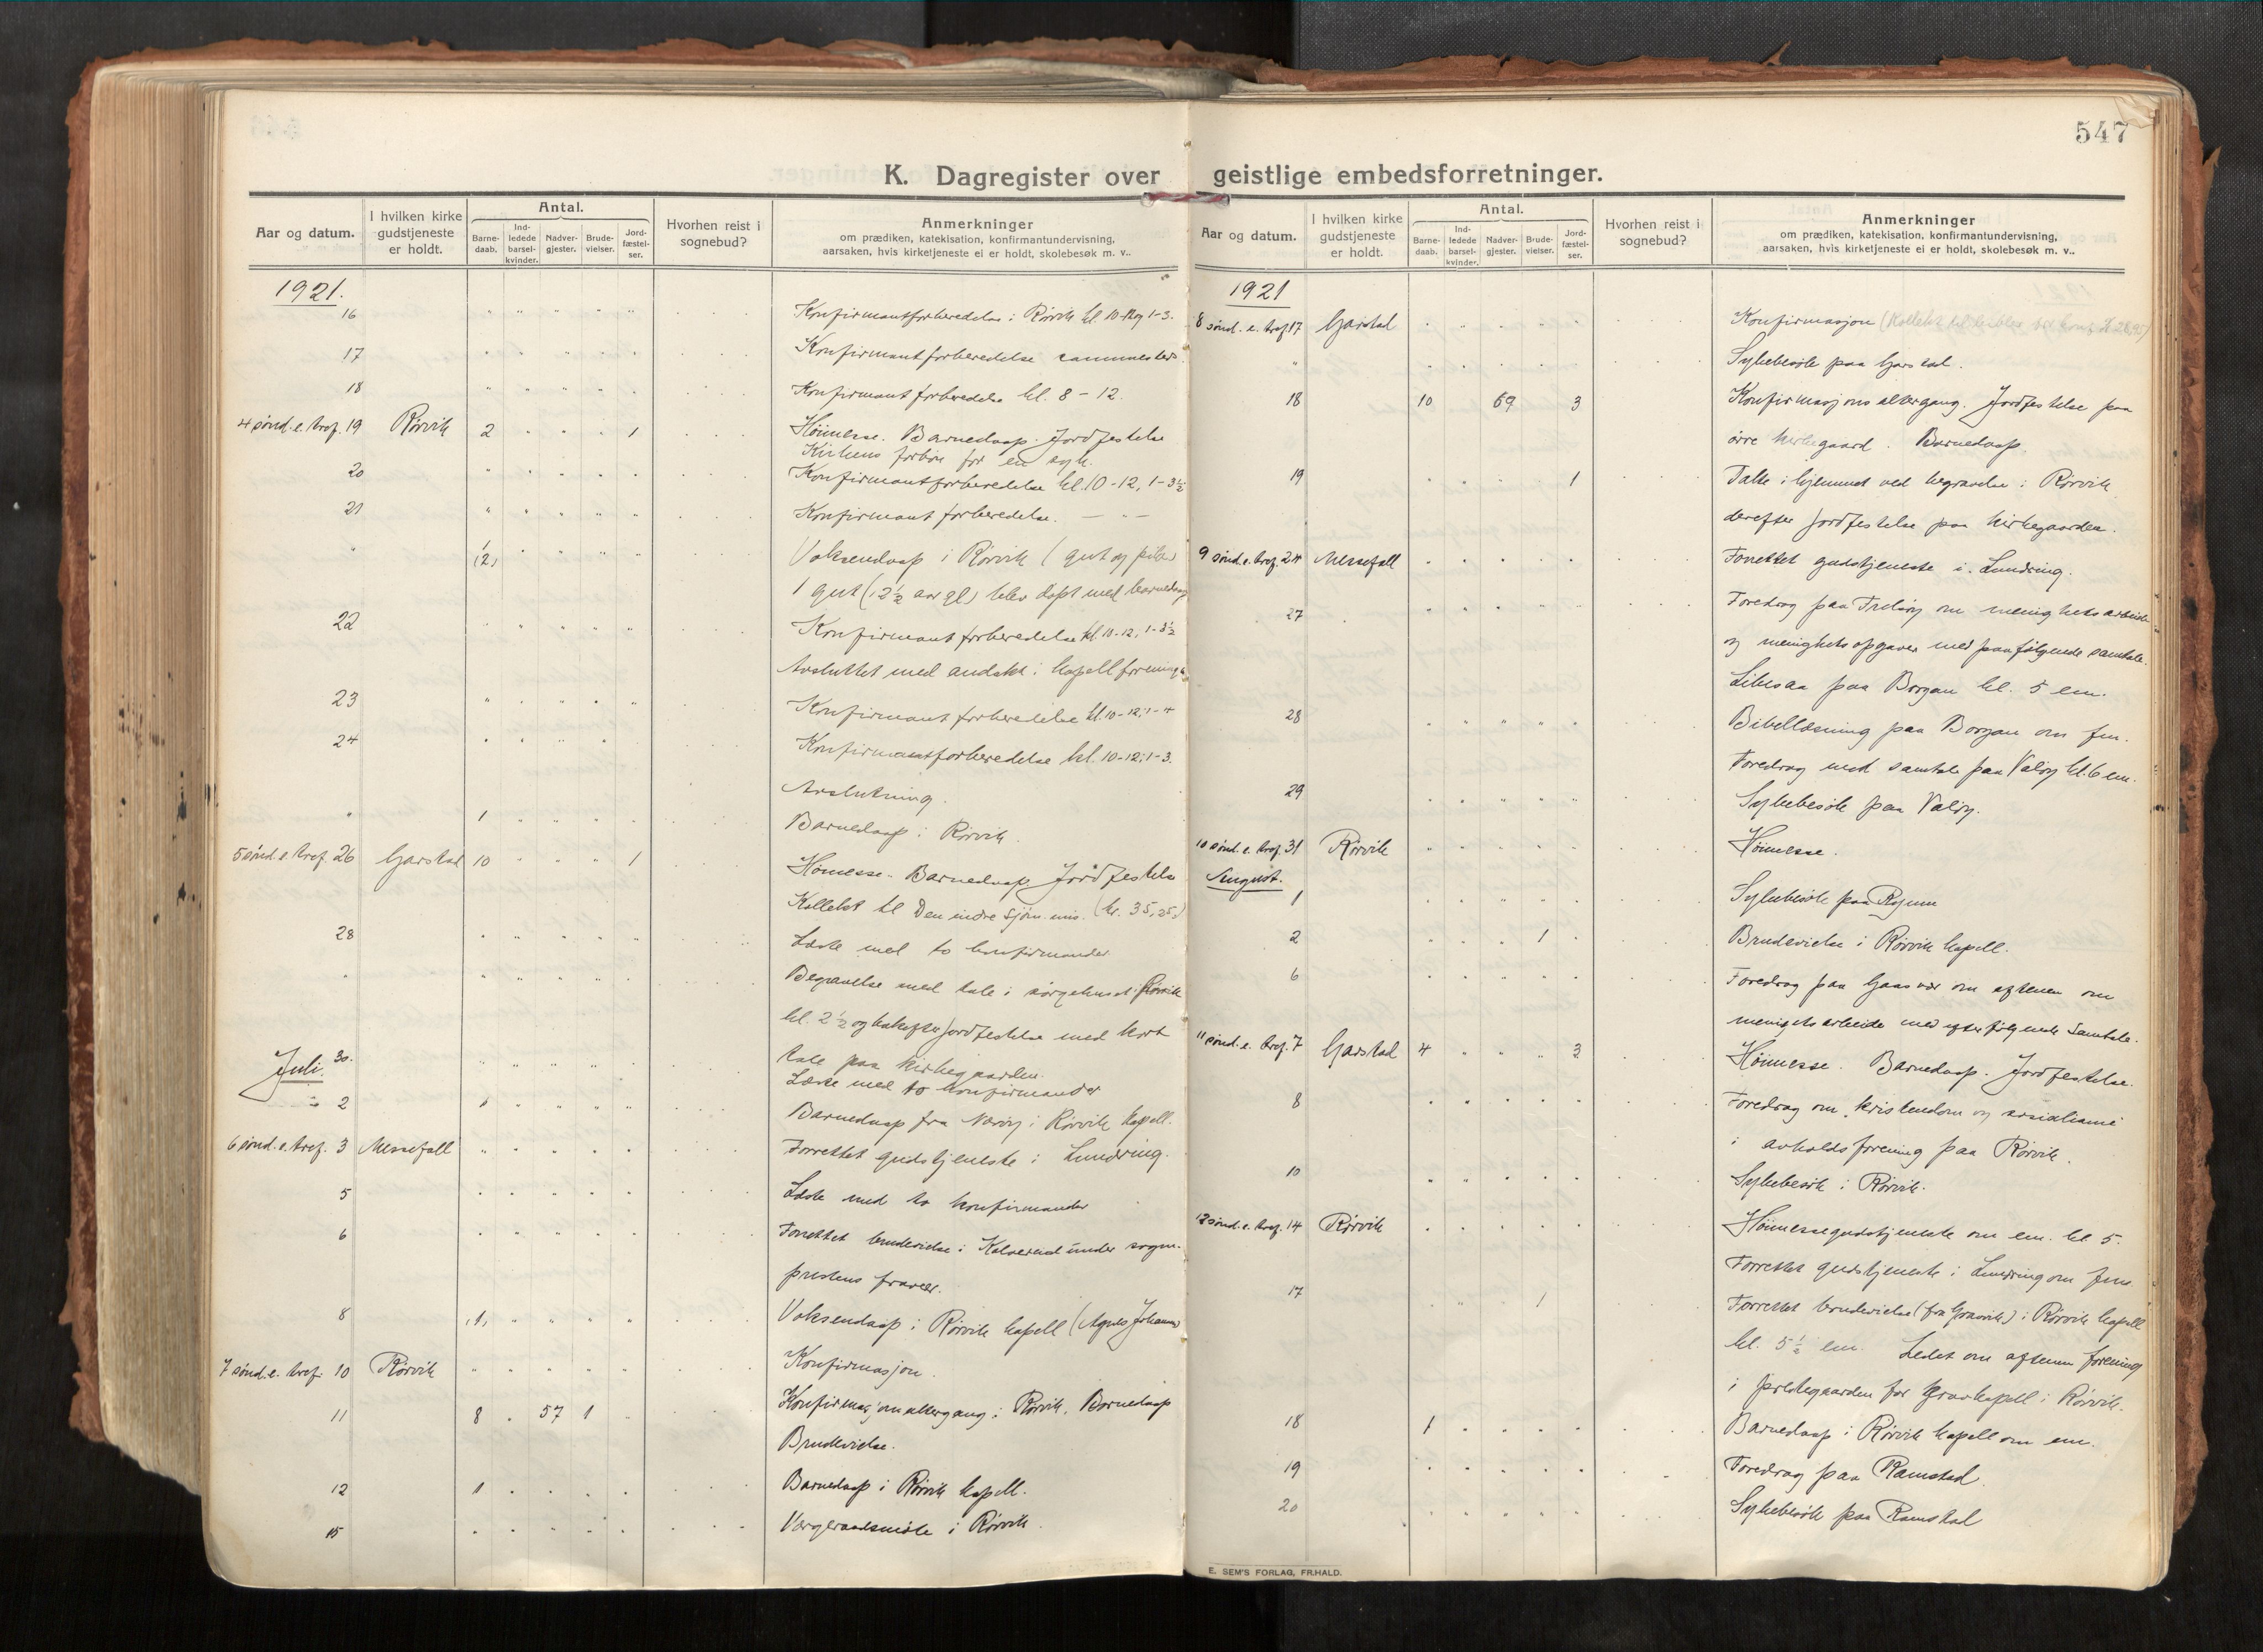 547
K. Dagregister over geistlige embedsforretninger.
Aar og datum.
I hvilken kirke gudstjeneste er holdt.
Antal.
Barnedaab.
Indledede barselkvinder.
Nadvergjester.
Brudevielser.
Jordfæstelser.
Hvorhen reist i sognebud?
Anmerkninger
om prædiken, katekisation, konfirmantundervisning,
aarsaken, hvis kirketjeneste ei er holdt, skolebesøk m. v..
1921.
16 Konfirmantforberedelse i Rørvik kl. 10-12 og 1-3.
17 Konfirmantforberedelse sammesteds.
18 Konfirmantforberedelse kl. 8-12.
4 sønd. e. tref. 19 Rørvik 2 1 Høimesse. Barnedaap. Jordfestelse
Kirkens forbøn for en syk.
20 Konfirmantforberedelse kl. 10-12, 1-3½
21 Konfirmantforberedelse. — " —
" (2) Voksendaap i Rørvik ( gut og pike)
1 gut (12½ aar gl) blev døpt med barnedaap
22 Konfirmantforberedelse kl. 10-12, 1-3½
Avsluttet med andakt i kapellforening
23 Konfirmantforberedelse kl. 10-12; 1-4
24 Konfirmantforberedelse kl. 10-12; 1-3.
Avslutning.
" 1 Barnedaap i Rørvik.
5 sønd. e. tref. 26 Garstad 10 1 Høimesse. Barnedaap. Jordfestelse
Kollekt til Den indre sjøm. mis. (kr. 35,25)
28 Læste med to konfirmander
" Begravelse med tale i sørgehuset i Rørvik
kl. 2½ og Jordfestelse med kort
tale paa kirkegaarden.
30. Læste med to konfirmander
Juli.
2 1 Barnedaap fra Nærøy i Rørvik kapell.
6 sønd. e. tref. 3 Messefall Forrettet gudstjeneste i Lundring.
5 Læste med to konfirmander
6 Forrettet brudevielse i Kolvereid under sogne-
prestens fravær.
8 (1) Voksendaap i Rørvik kapell (Agnes Johanne)
7 sønd. e. tref. 10 Rørvik Konfirmasjon.
11 8 57 1 Konfirmasjonsaltergang i Rørvik. Barnedaap
Brudevielse.
12 1 Barnedaap i Rørvik kapell.
15 Vergeraadsmøte i Rørvik.
Aar og datum.
I hvilken kirke gudstjeneste er holdt.
Antal.
Barnedaab.
Indledede barselkvinder.
Nadvergjester.
Brudevielser.
Jordfæstelser.
Hvorhen reist i sognebud?
Anmerkninger
om prædiken, katekisation, konfirmantundervisning,
aarsaken, hvis kirketjeneste ei er holdt, skolebesøk m. v..
1921
8 sønd. e. tref. 17 Garstad Konfirmasjon
" Sykebesøk paa Garstad.
18 10 69 3 Konfirmasjonsaltergang. Jordfestelse paa
øvre kirkegaard. Barnedaap.
19 1 Talte i hjemmet ved begravelse i Rørvik
derefter jordfestelse paa kirkegaarden.
9 sønd. e. tref. 24 Messefall Forrettet gudstjeneste i Lundring.
27 Foredrag paa om menighetsarbeide
og menighetsopgaver med paafølgende samtale.
Likesaa paa Borgan kl. 5 em.
28 Bibellæsning paa Borgan om fm.
Foredrag med samtale paa Valøy kl. 6 em.
29 Sykebesøk paa Valøy.
10 sønd. e. tref. 31 Rørvik Høimesse.
August.
1 Sykebesøk paa
2 1 Brudevielse i Rørvik kapell.
6 Foredrag paa Gaasvær om aftenen om
menighetsarbeide med efterfølgende samtale.
11 sønd. e. tref. 7 Garstad 4 2 Høimesse. Barnedaap. Jordfestelse.
8 Foredrag om kristendom og sosialisme
i avholdsforening paa Rørvik.
10 Sykebesøk i Rørvik.
12 sønd. e. tref. 14 Rørvik Høimessegudstjeneste om em. kl. 5.
Forrettet gudstjeneste i Lundring om fm.
17 1 Forrettet brudevielse (fra Gravvik) i Rørvik kapell
kl. 5½ em. Ledet om aftenen forening
i prestegaarden for gravkapell i Rørvik.
18 1 Barnedaap i Rørvik kapell om em.
19 Foredrag paa Ramstad.
20 Sykebesøk paa Ramstad
E. SEM'S FORLAG, FR.HALD.